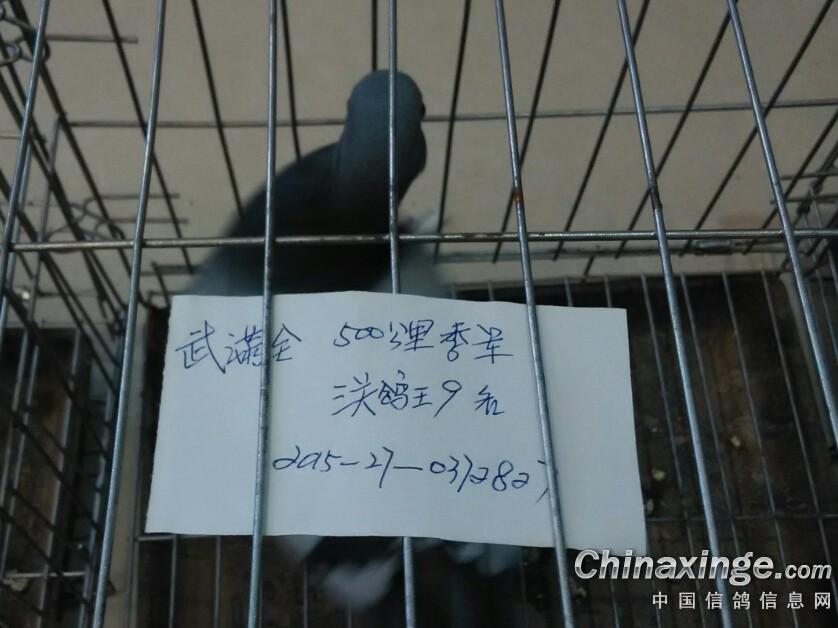 武满全 500公里季军
三关鸽王9名
2015-27-0372827
Chinaxinge.com
中国信鸽信息网